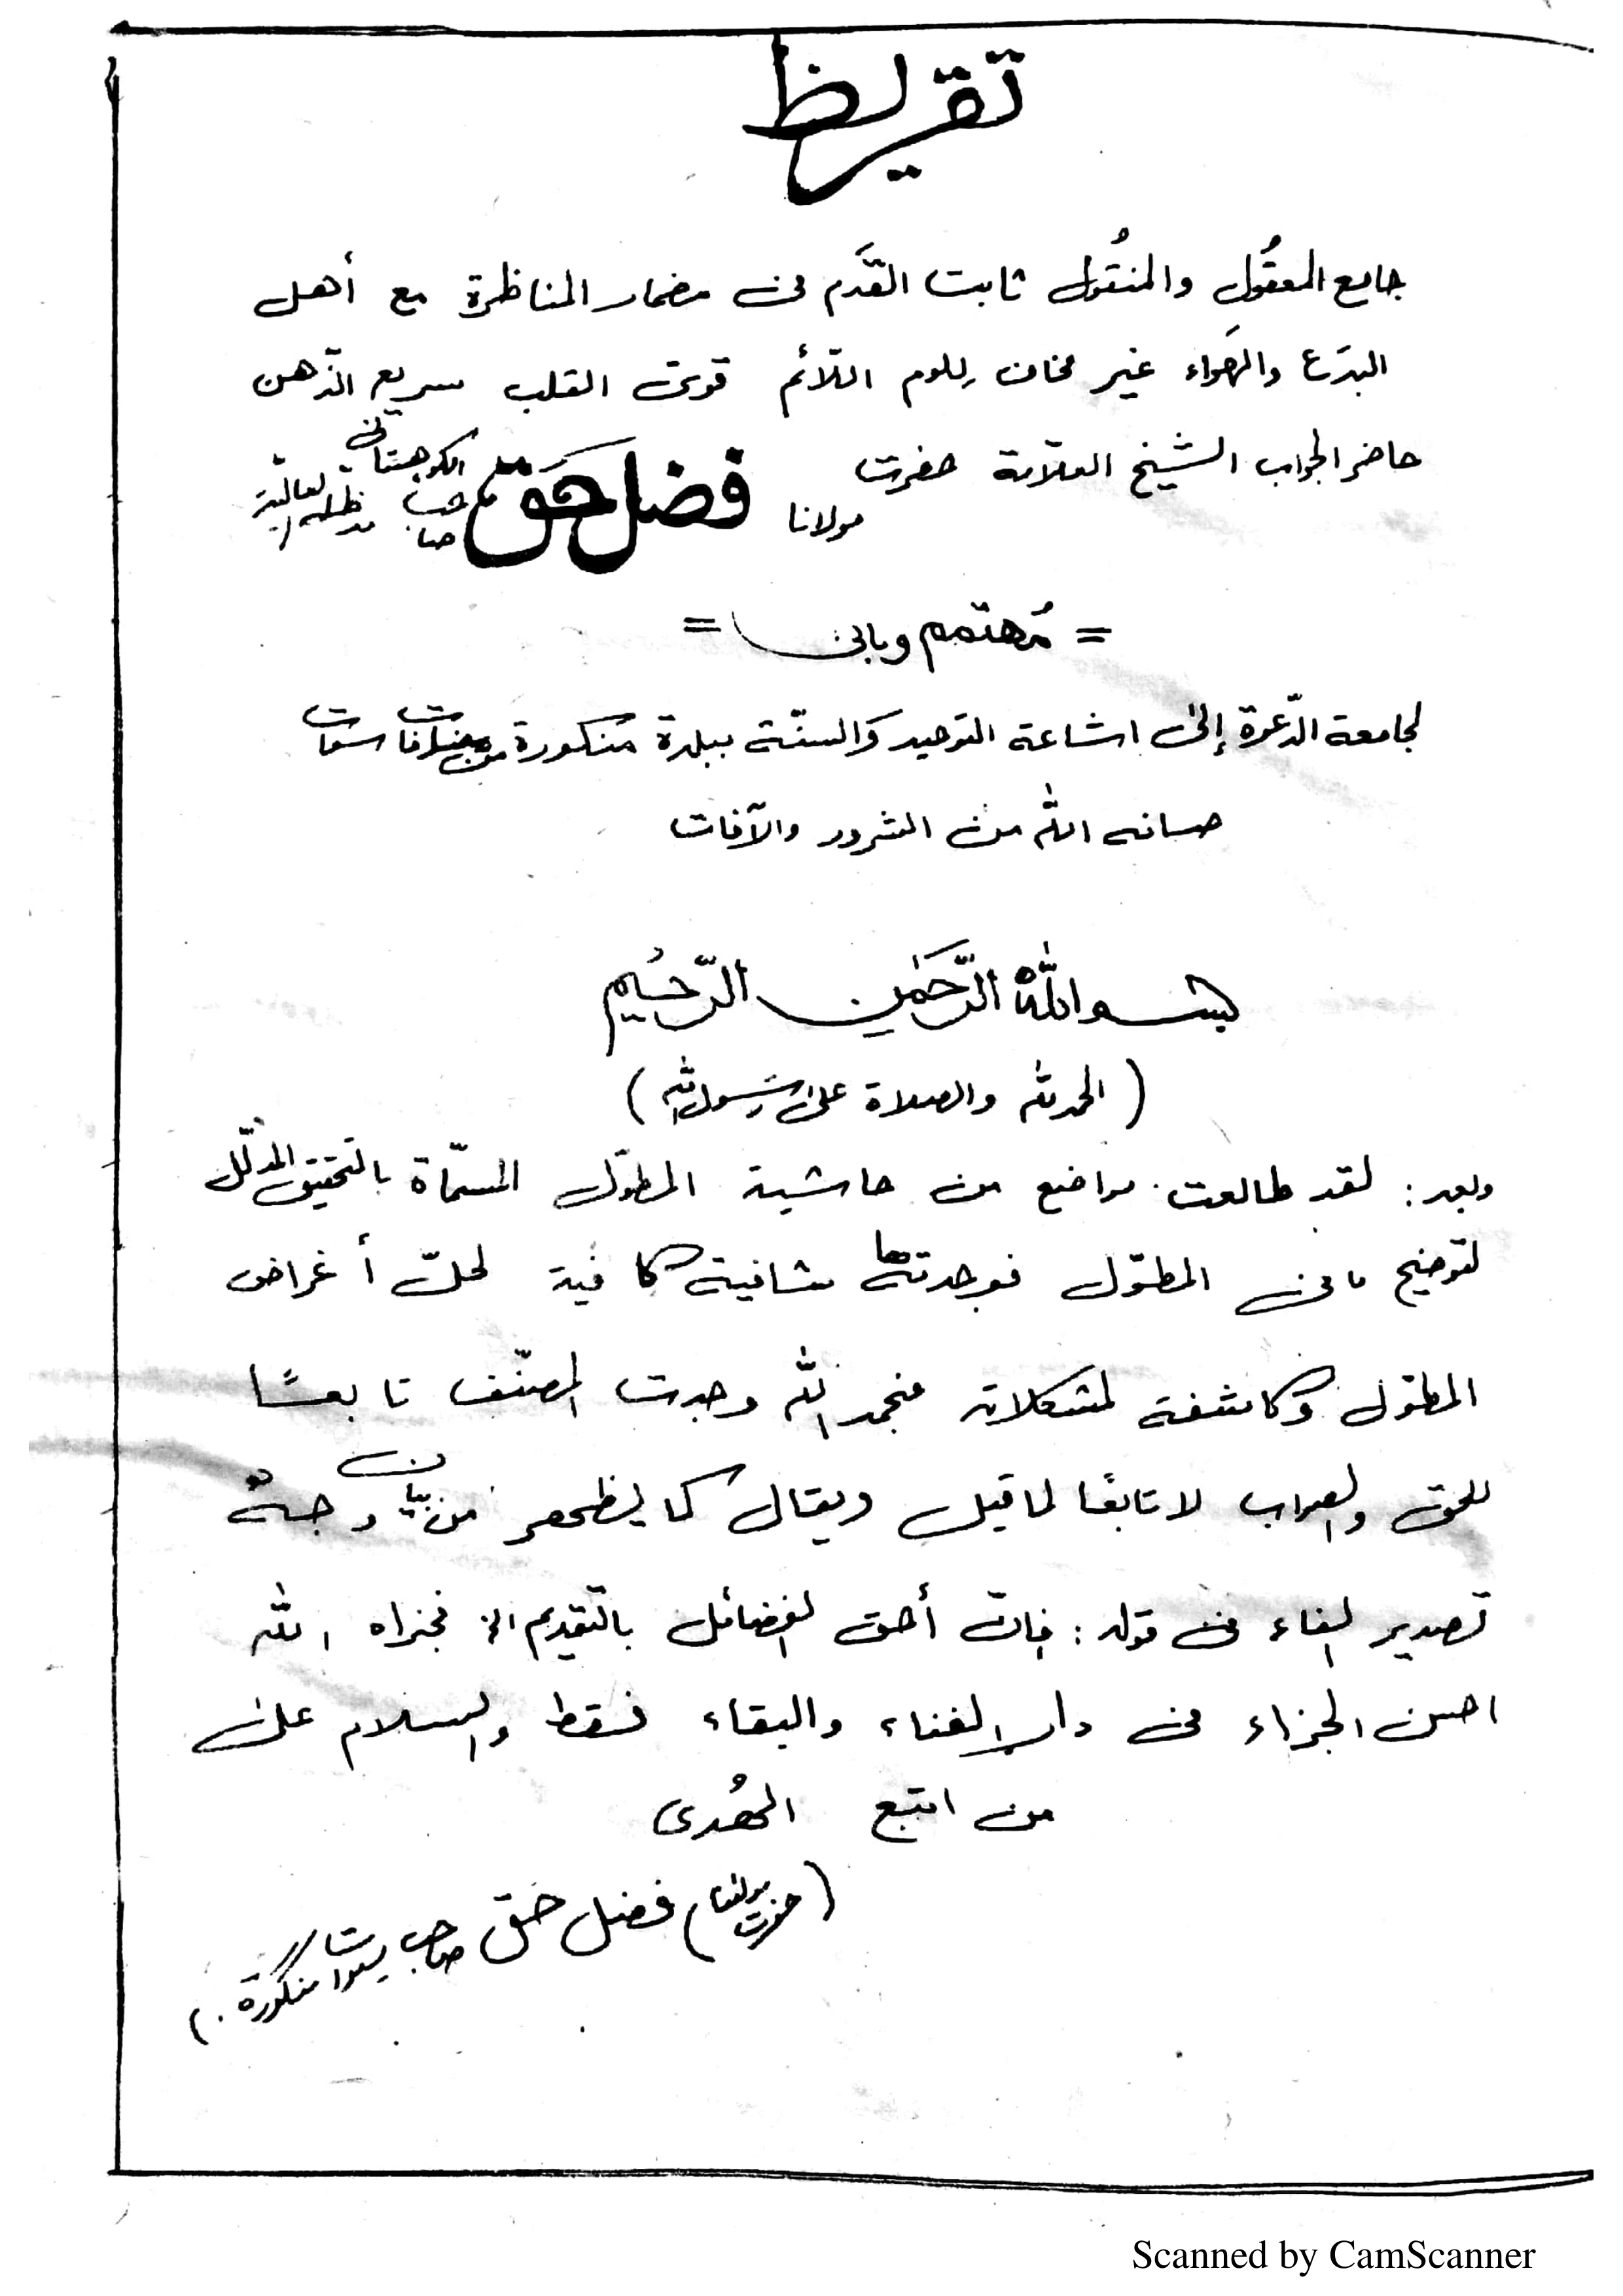 تقريظ
جامع المعقُول والمنقُول ثابت القَدَم فى مضمار المناظرة مع أهل
البدَع والهَواء غير مخاف لِلوم اللّائم قوىّ القلب سريع الذّهن
حاضر الجواب الشيخ العلّامة حضرت
مولانا فضل حق الكوهستانى صاحب مدظله العالية
= مُهتمم وبانى =
لجامعة الدّعوة إلىٰ اشاعة التوحيد وَالسنّة ببلدة منكورة من سوات
صانه الله من الشرور والآفات
بسم الله الرَّحمٰنِ الرَّحيم
( الحمد لله والصلاة علىٰ رسول الله )
وبعد : لقد طالعت مواضع من حاشية المطوّل المسمّاة بالتحقيق المدلّل
لتوضيح ما فى المطوّل فوجدتها شافية كافية لحلّ أغراض
المطوّل وكاشفة لمشكلاته فبحمد الله وجدت المصنّف تابعًا
للحق والصواب لا تابعًا لما قيل ويقال كما يظهر من بيان وجه
تصدير الفاء فى قوله : فانّ أحق الفضائل بالتقديم الخ فجزاه الله
احسن الجزاء فى دار الفناء والبقاء فقط والسلام علىٰ
من اتبع الهُدى
(حضرت مولانا) فضل حق صاحب سوات منكورة .)
Scanned by CamScanner